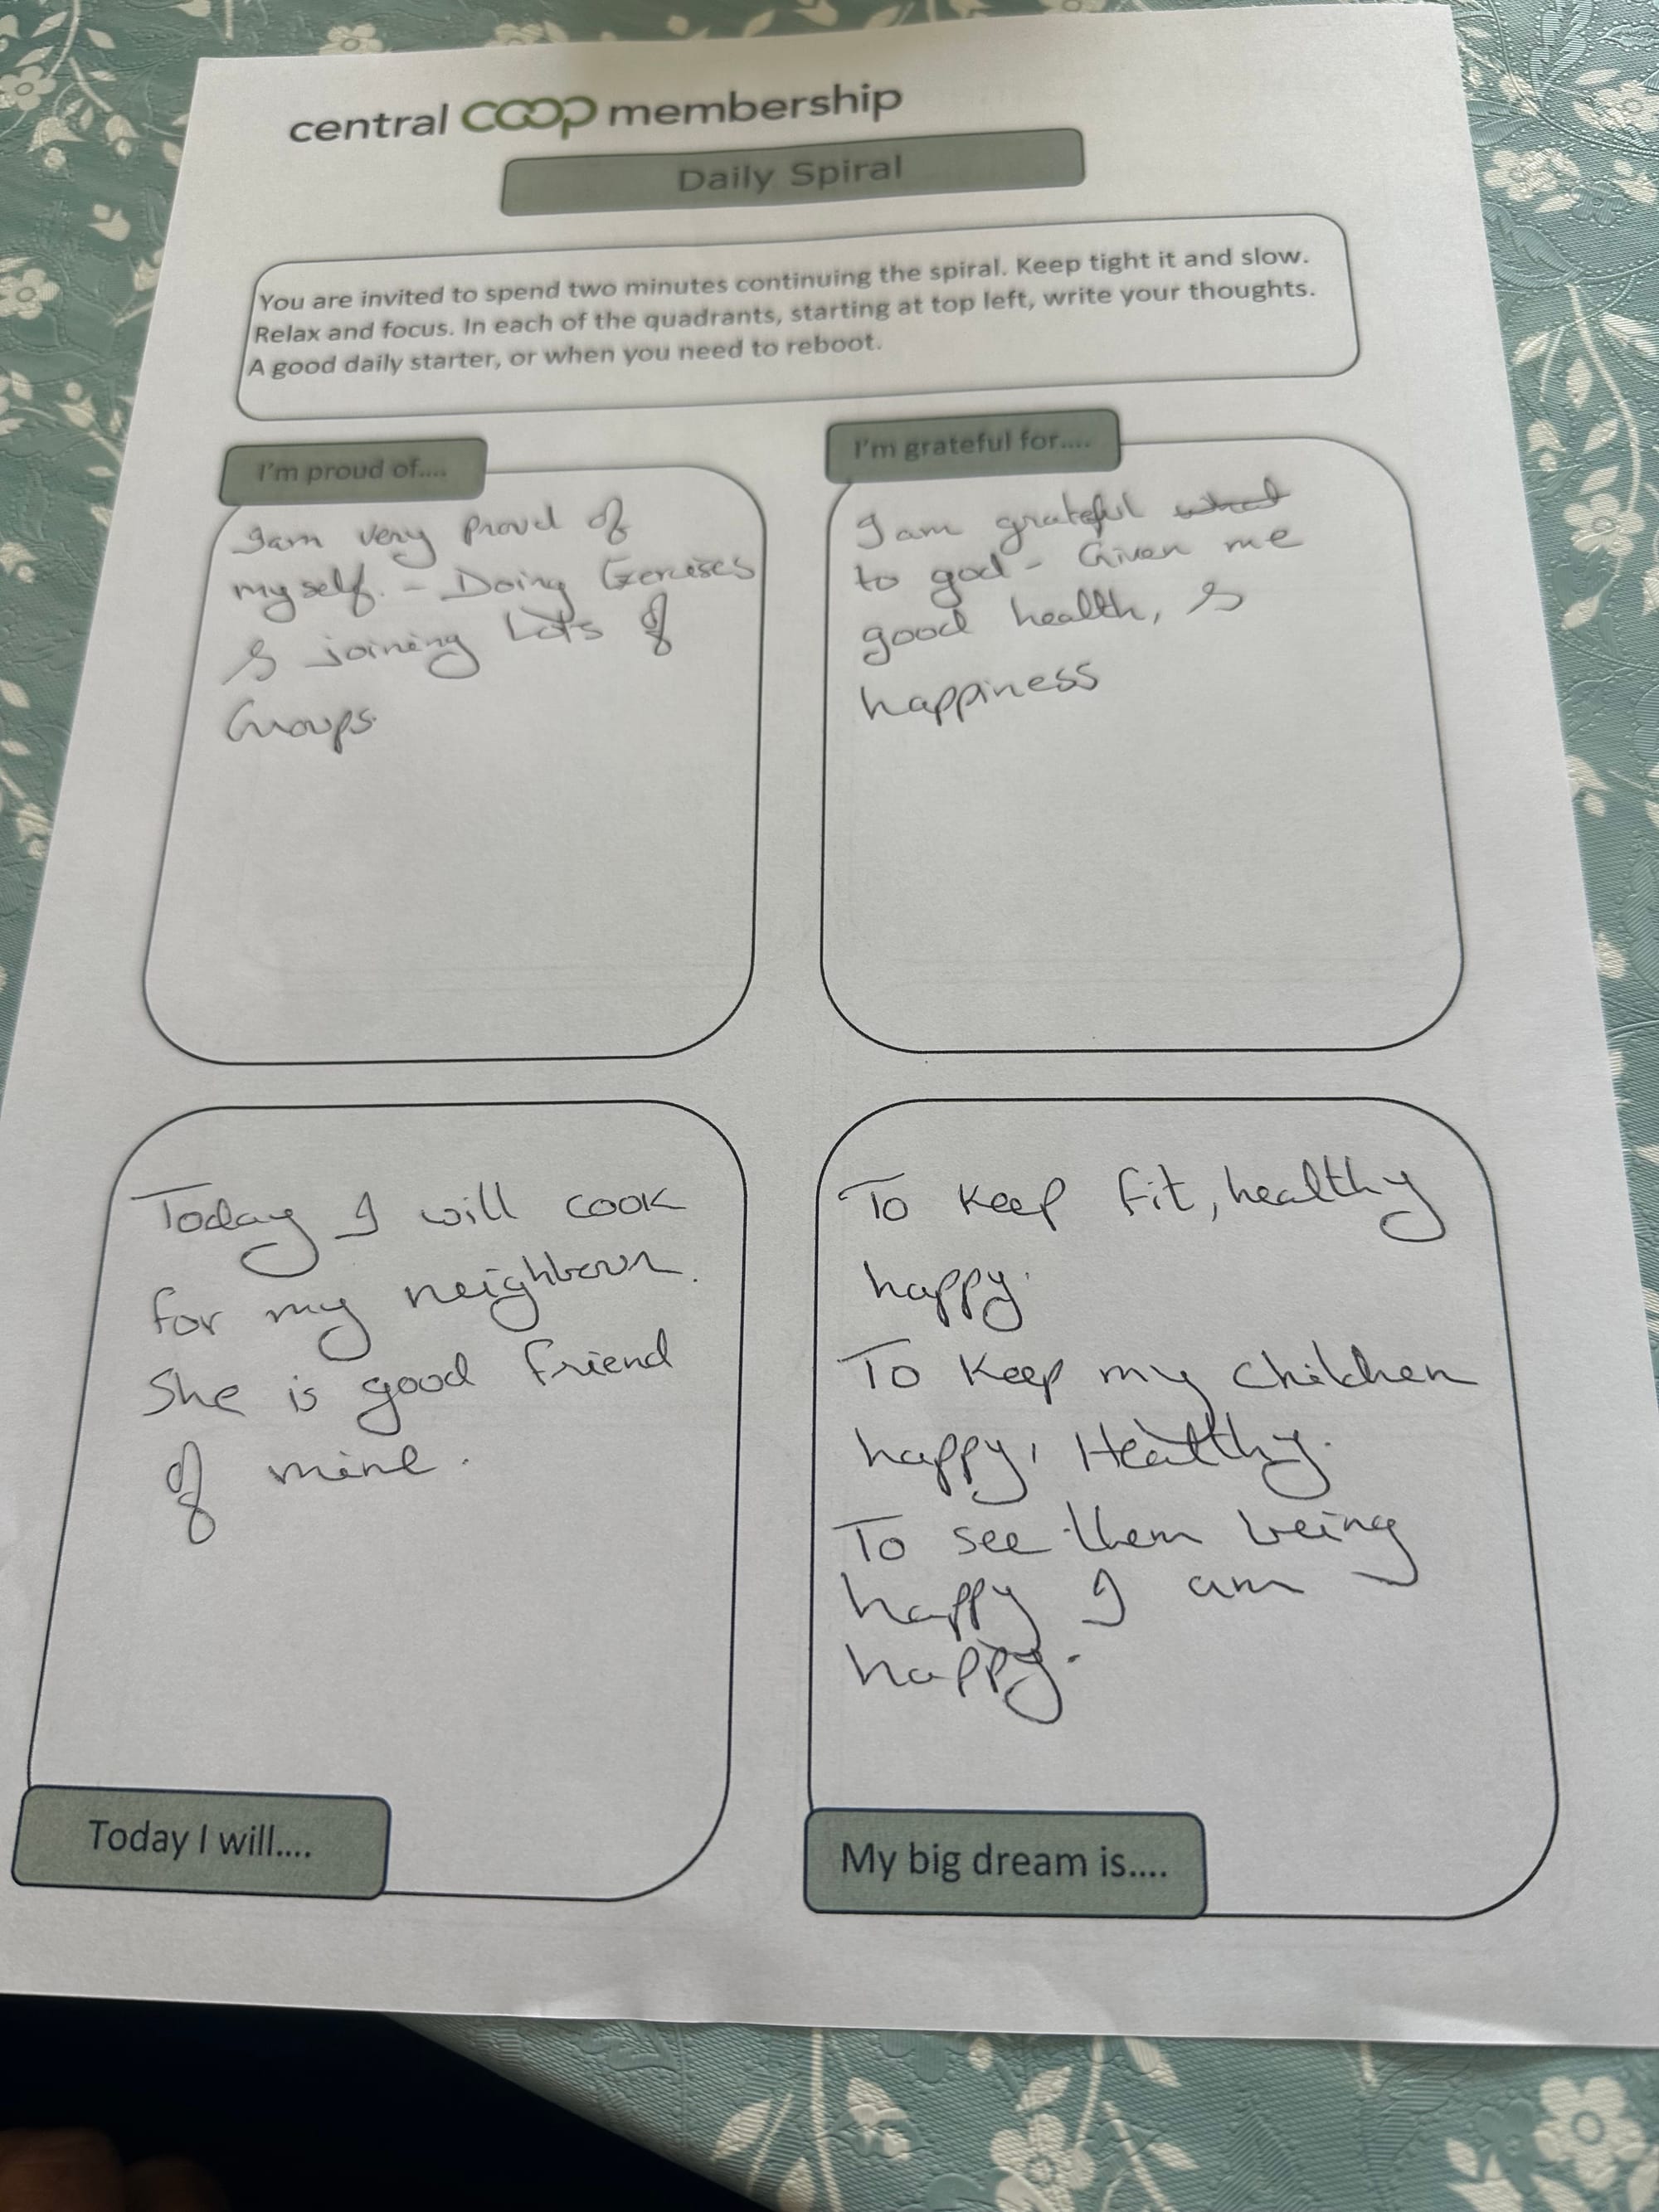 central coop membership
Daily Spiral
You are invited to spend two minutes continuing the spiral. Keep tight it and slow.
Relax and focus. In each of the quadrants, starting at top left, write your thoughts.
A good daily starter, or when you need to reboot.
I'm proud of....
I am very proud of
myself. - Doing Exercises
& joining Lots of
Groups.
I'm grateful for....
I am grateful what
to god - Given me
good health, &
happiness
Today I will cook
for my neighbour.
She is good friend
of mine.
Today I will....
To keep fit, healthy
happy.
To keep my children
happy, Healthy.
To see them being
happy I am
happy.
My big dream is....